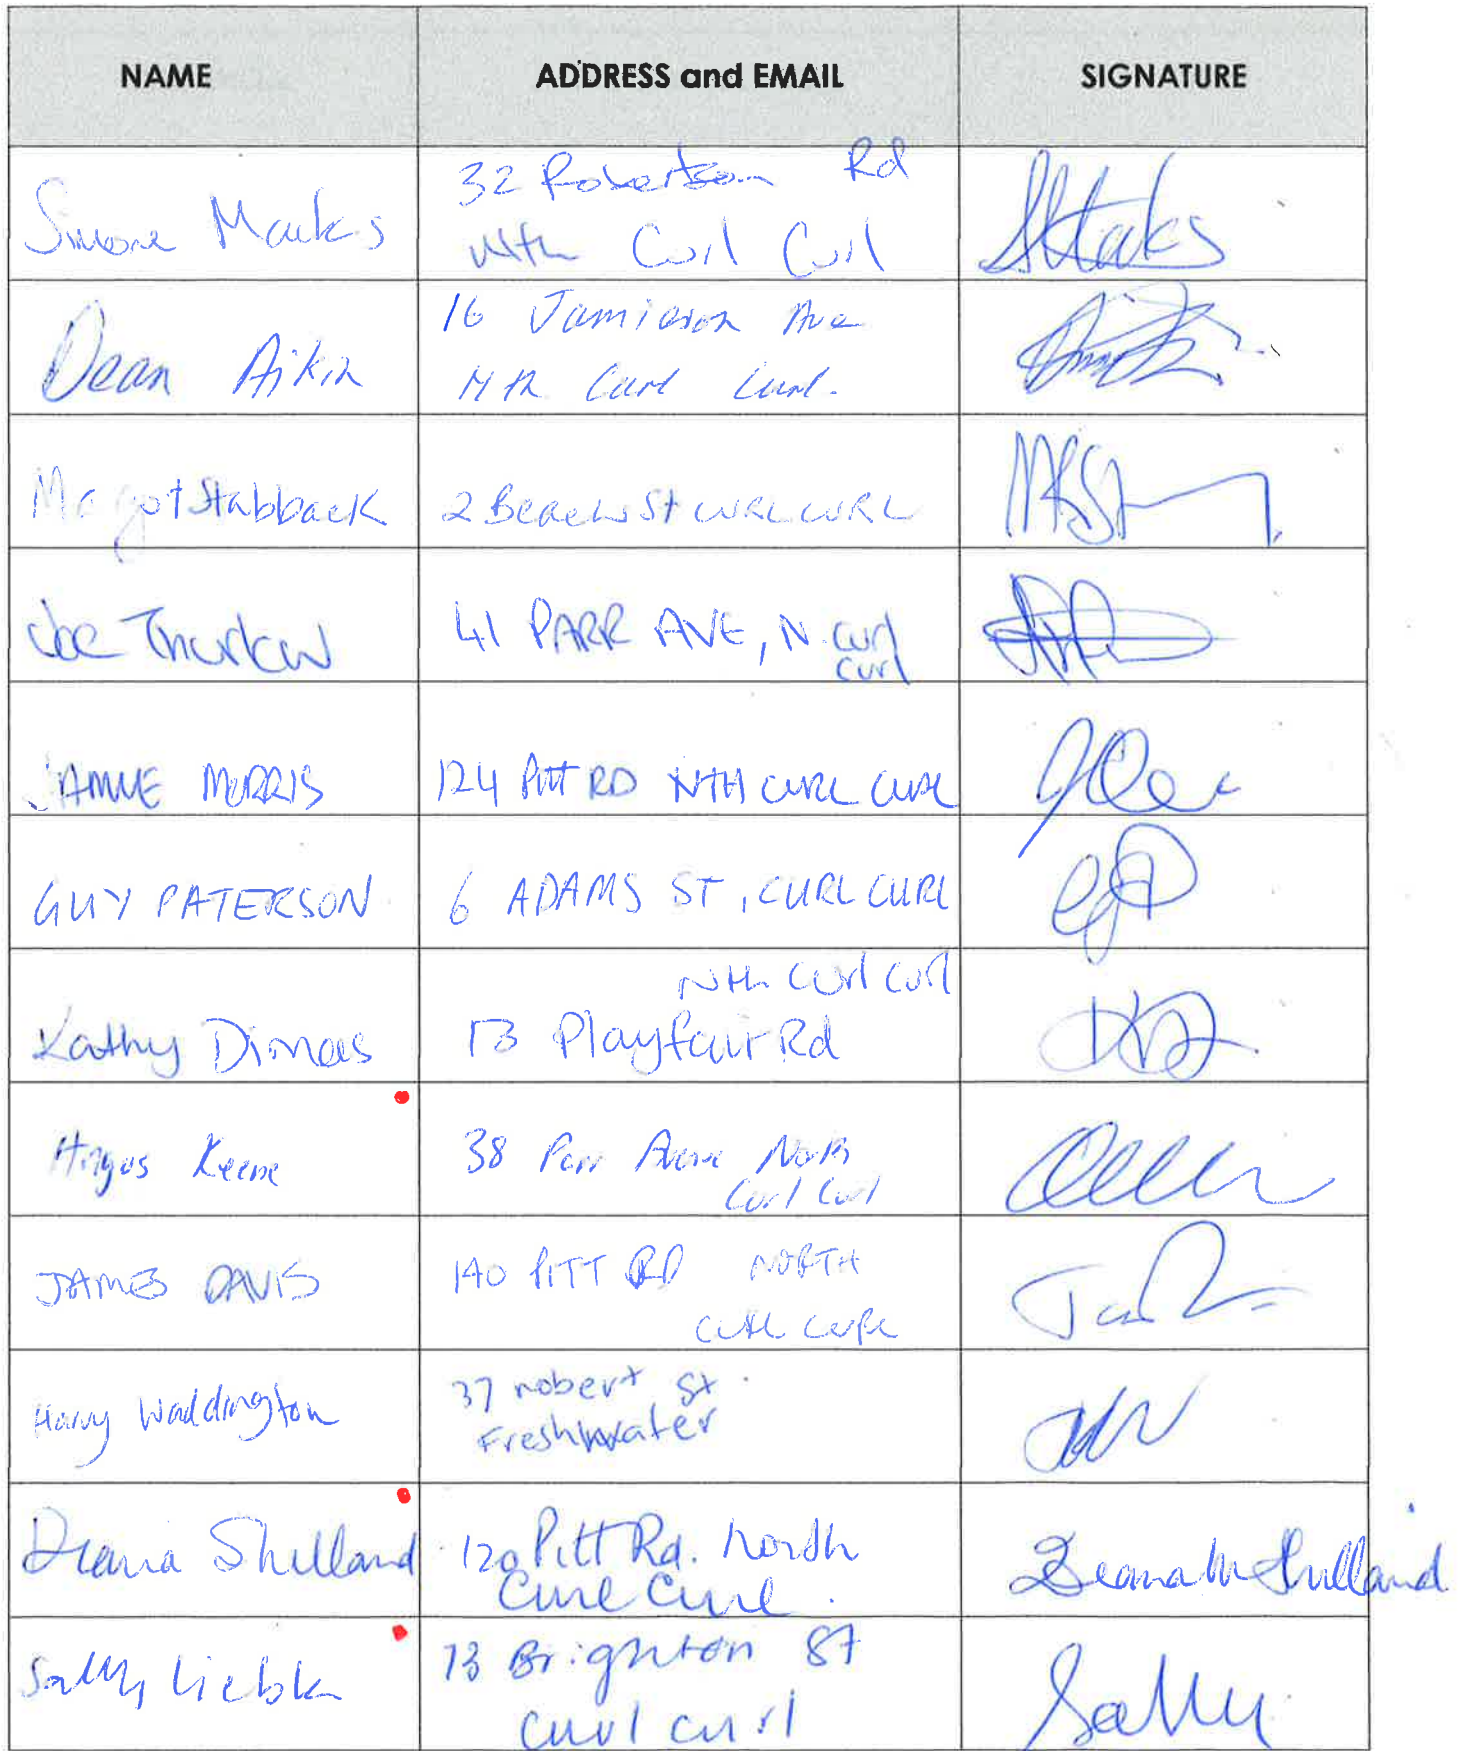 NAME ADDRESS and EMAIL SIGNATURE
Simone Marks 32 Robertson Rd
Nth Curl Curl
Dean Aikin 16 Jamieson Ave
Nth Curl Curl.
Margot Stabback 2 Beach St CURL CURL
Joe Thurlow 41 PARR AVE, N. Curl
Curl
JAMIE MORRIS 124 Pitt RD NTH CURL CURL
GUY PATERSON 6 ADAMS ST, CURL CURL
Nth Curl Curl
Kathy Dimas 13 Playfair Rd
Keene 38 Parr Avenue North
Curl Curl
JAMES DAVIS 140 PITT RD NORTH
CURL CURL
Harry Waddington 37 robert St
Freshwater
Shelland 120 Pitt Rd. North
Curl Curl.
Sally 73 Brighton St
Curl Curl Sally